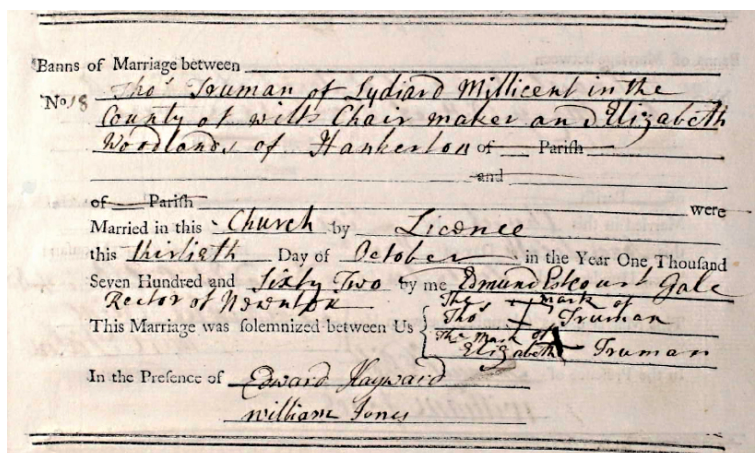 Banns of Marriage between
No 18 Thos Truman of Lydiard Millicent in the
County of wilts Chair maker and Elizabeth
Woodlands of Hankerton of Parish
and
of Parish were
Married in this Church by Licence
this thirtieth Day of October in the Year One Thousand
Seven Hundred and Sixty Two by me Edmund Estcourt Gale
Rector of Newnton
The mark of
This Marriage was solemnized between Us { Thos + Truman
The mark of
Elizabeth + Truman
In the Presence of Edward Hayward
william Jones